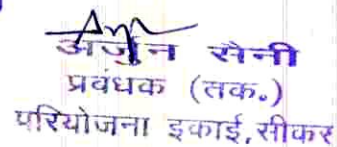 अर्जुन सैनी
प्रवंधक (तक.)
परियोजना इकाई,सीकर